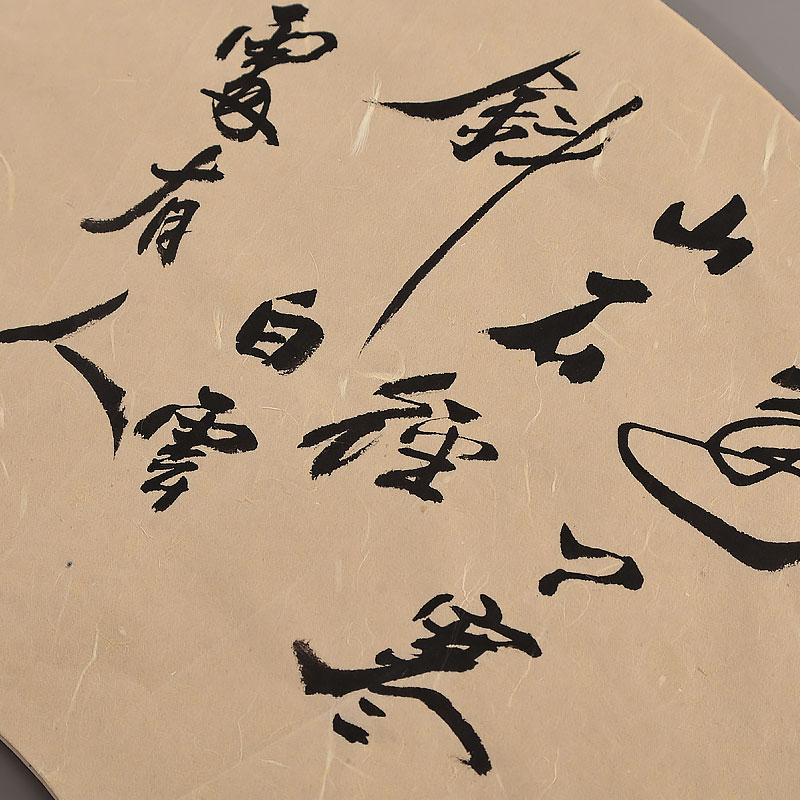 遠上寒
山石徑
斜白雲
處有人